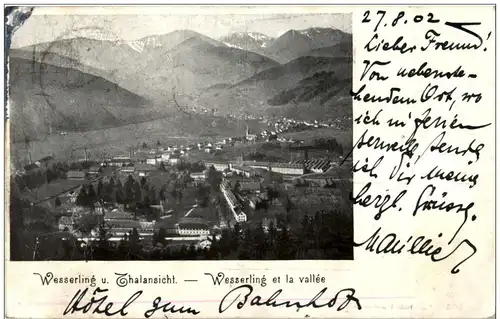 27.8.02
Lieber Freund!
Von nebenste-
hendem Ort, wo
ich in Ferien
verweile sende
ich Dir meine
herzl. Grüsse.
Wesserling u. Thalansicht. — Wesserling et la vallée
Hôtel zum Bahnhof